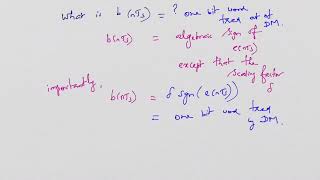 What is b(nTs) = ? one bit word
txed at o/p of DM.
b(nTs) = algebraic sign of
e(nTs)
except that the
scaling factor
δ
importantly,
b(nTs) = δ sgn(e(nTs))
= one bit word txed
by DM.